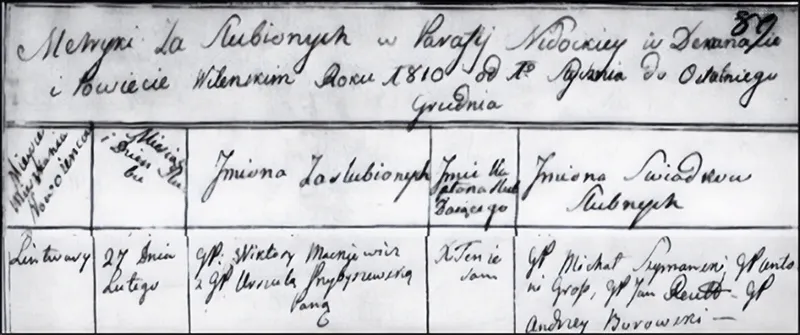 89
Metryki Za Slubionych w Parafij Nidockiey w Dekanacie
i Powiecie Wilenskim Roku 1810 od 1º Stycznia do Ostatniego
Grudnia
Mieysce
Mieszkania
Nowożenca
Miesiąc
i Dzien Slu
bu
Jmiona Zaslubionych
Jmie Ka
płana Slub
Daiącego
Jmiona Swiadkow
Slubnych
Lintwary
27 Dnia
Lutego
GP. Wiktory Mackiewicz
z GP Urszulą Przybyszewską
Panną
X Tenże
sam
GP Michał Szymanski, GP Anto
ni Gross, GP Jan Reutt GP
Andrzey Borowski —